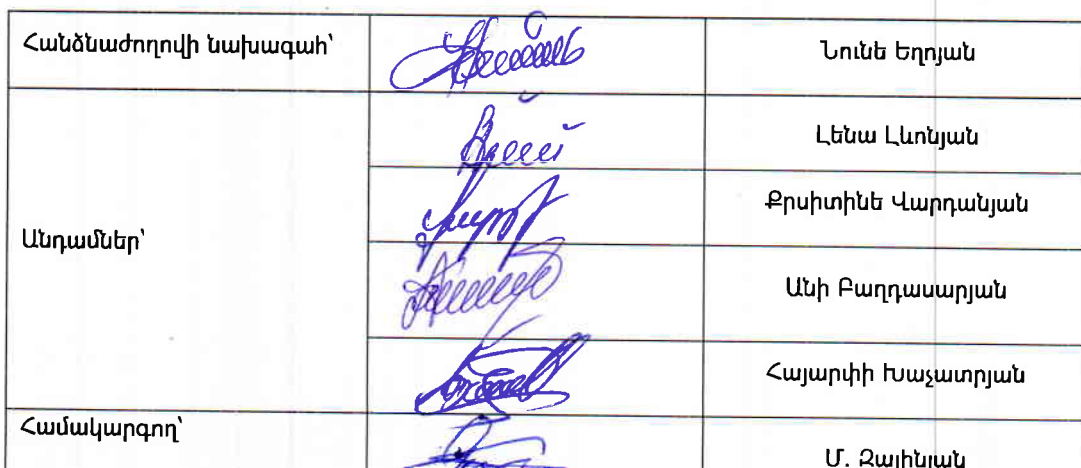 Հանձնաժողովի նախագահ՝
Նունե Եղոյան
Լենա Լևոնյան
Քրսիտինե Վարդանյան
Անդամներ՝
Անի Բաղդասարյան
Հայարփի Խաչատրյան
Համակարգող՝
Մ. Զալինյան